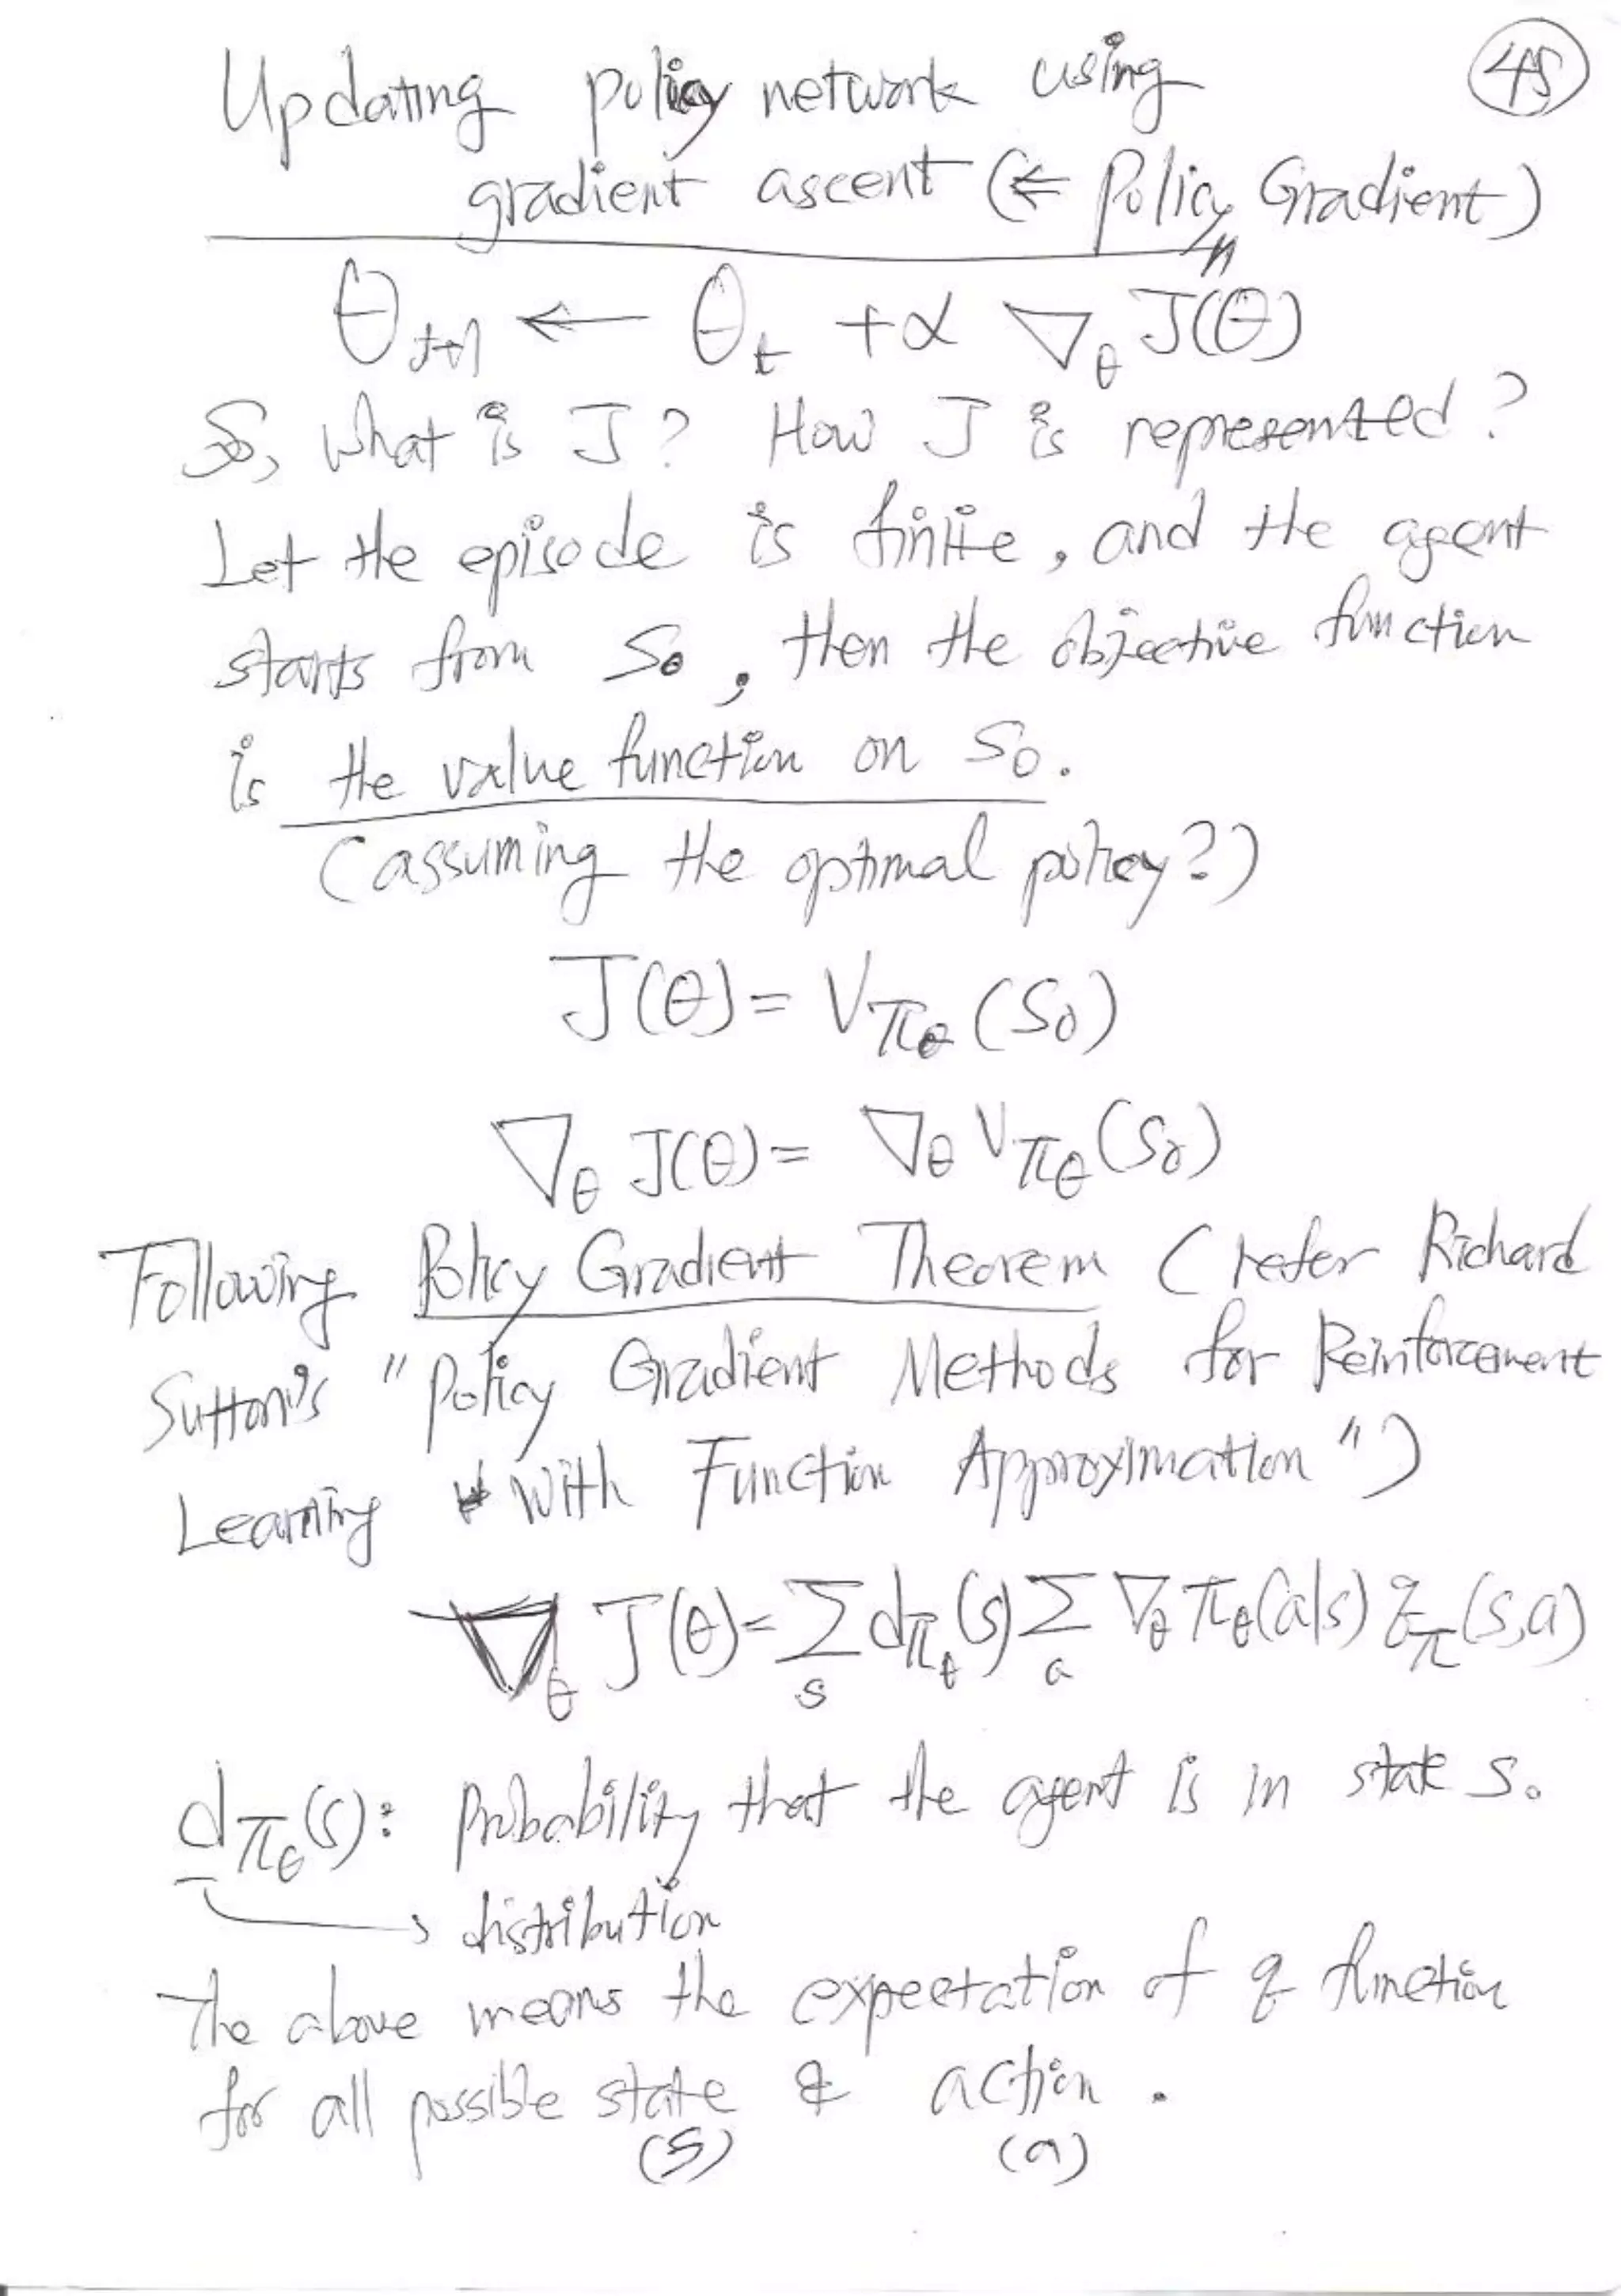 Updating policy network using
45
gradient ascent (⇐ Policy Gradient)
θt+1 ← θt + α ∇θ J(θ)
So, what is J? How J is represented?
Let the episode is finite, and the agent
starts from S0, then the objective function
is the value function on S0.
(assuming the optimal policy?)
J(θ) = Vπθ(S0)
∇θ J(θ) = ∇θ Vπθ(S0)
Following Policy Gradient Theorem (refer Richard
Sutton's "Policy Gradient Methods for Reinforcement
Learning with Function Approximation")
∇θ J(θ) = Σs dπθ(s) Σa ∇θ πθ(a|s) qπ(s,a)
dπθ(s): Probability that the agent is in state s.
→ distribution
The above means the expectation of q function
for all possible state & action.
(S) (a)